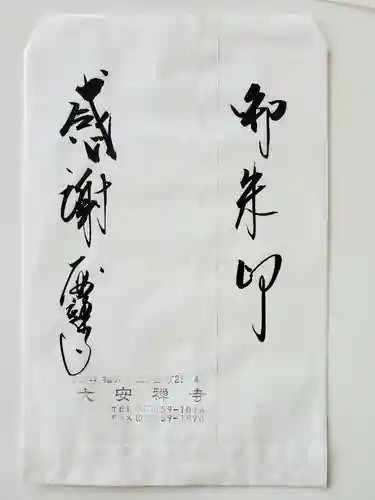 御朱印
感謝
大安禅寺
TEL 59-1024
FAX 59-1870